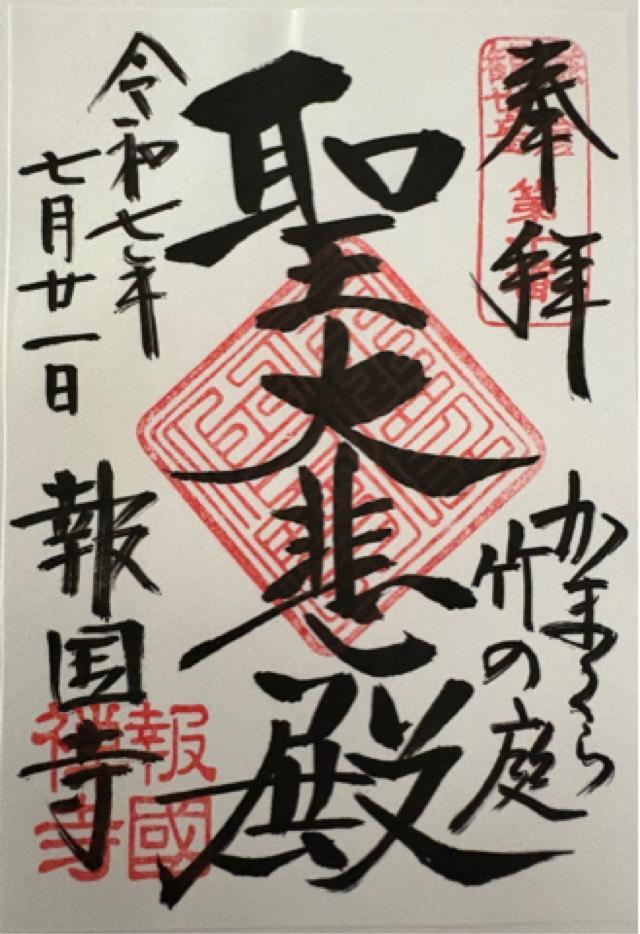 奉拝
かまくら
竹の庭
聖大悲殿
令和七年
七月廿一日
報国寺
報國
禅寺